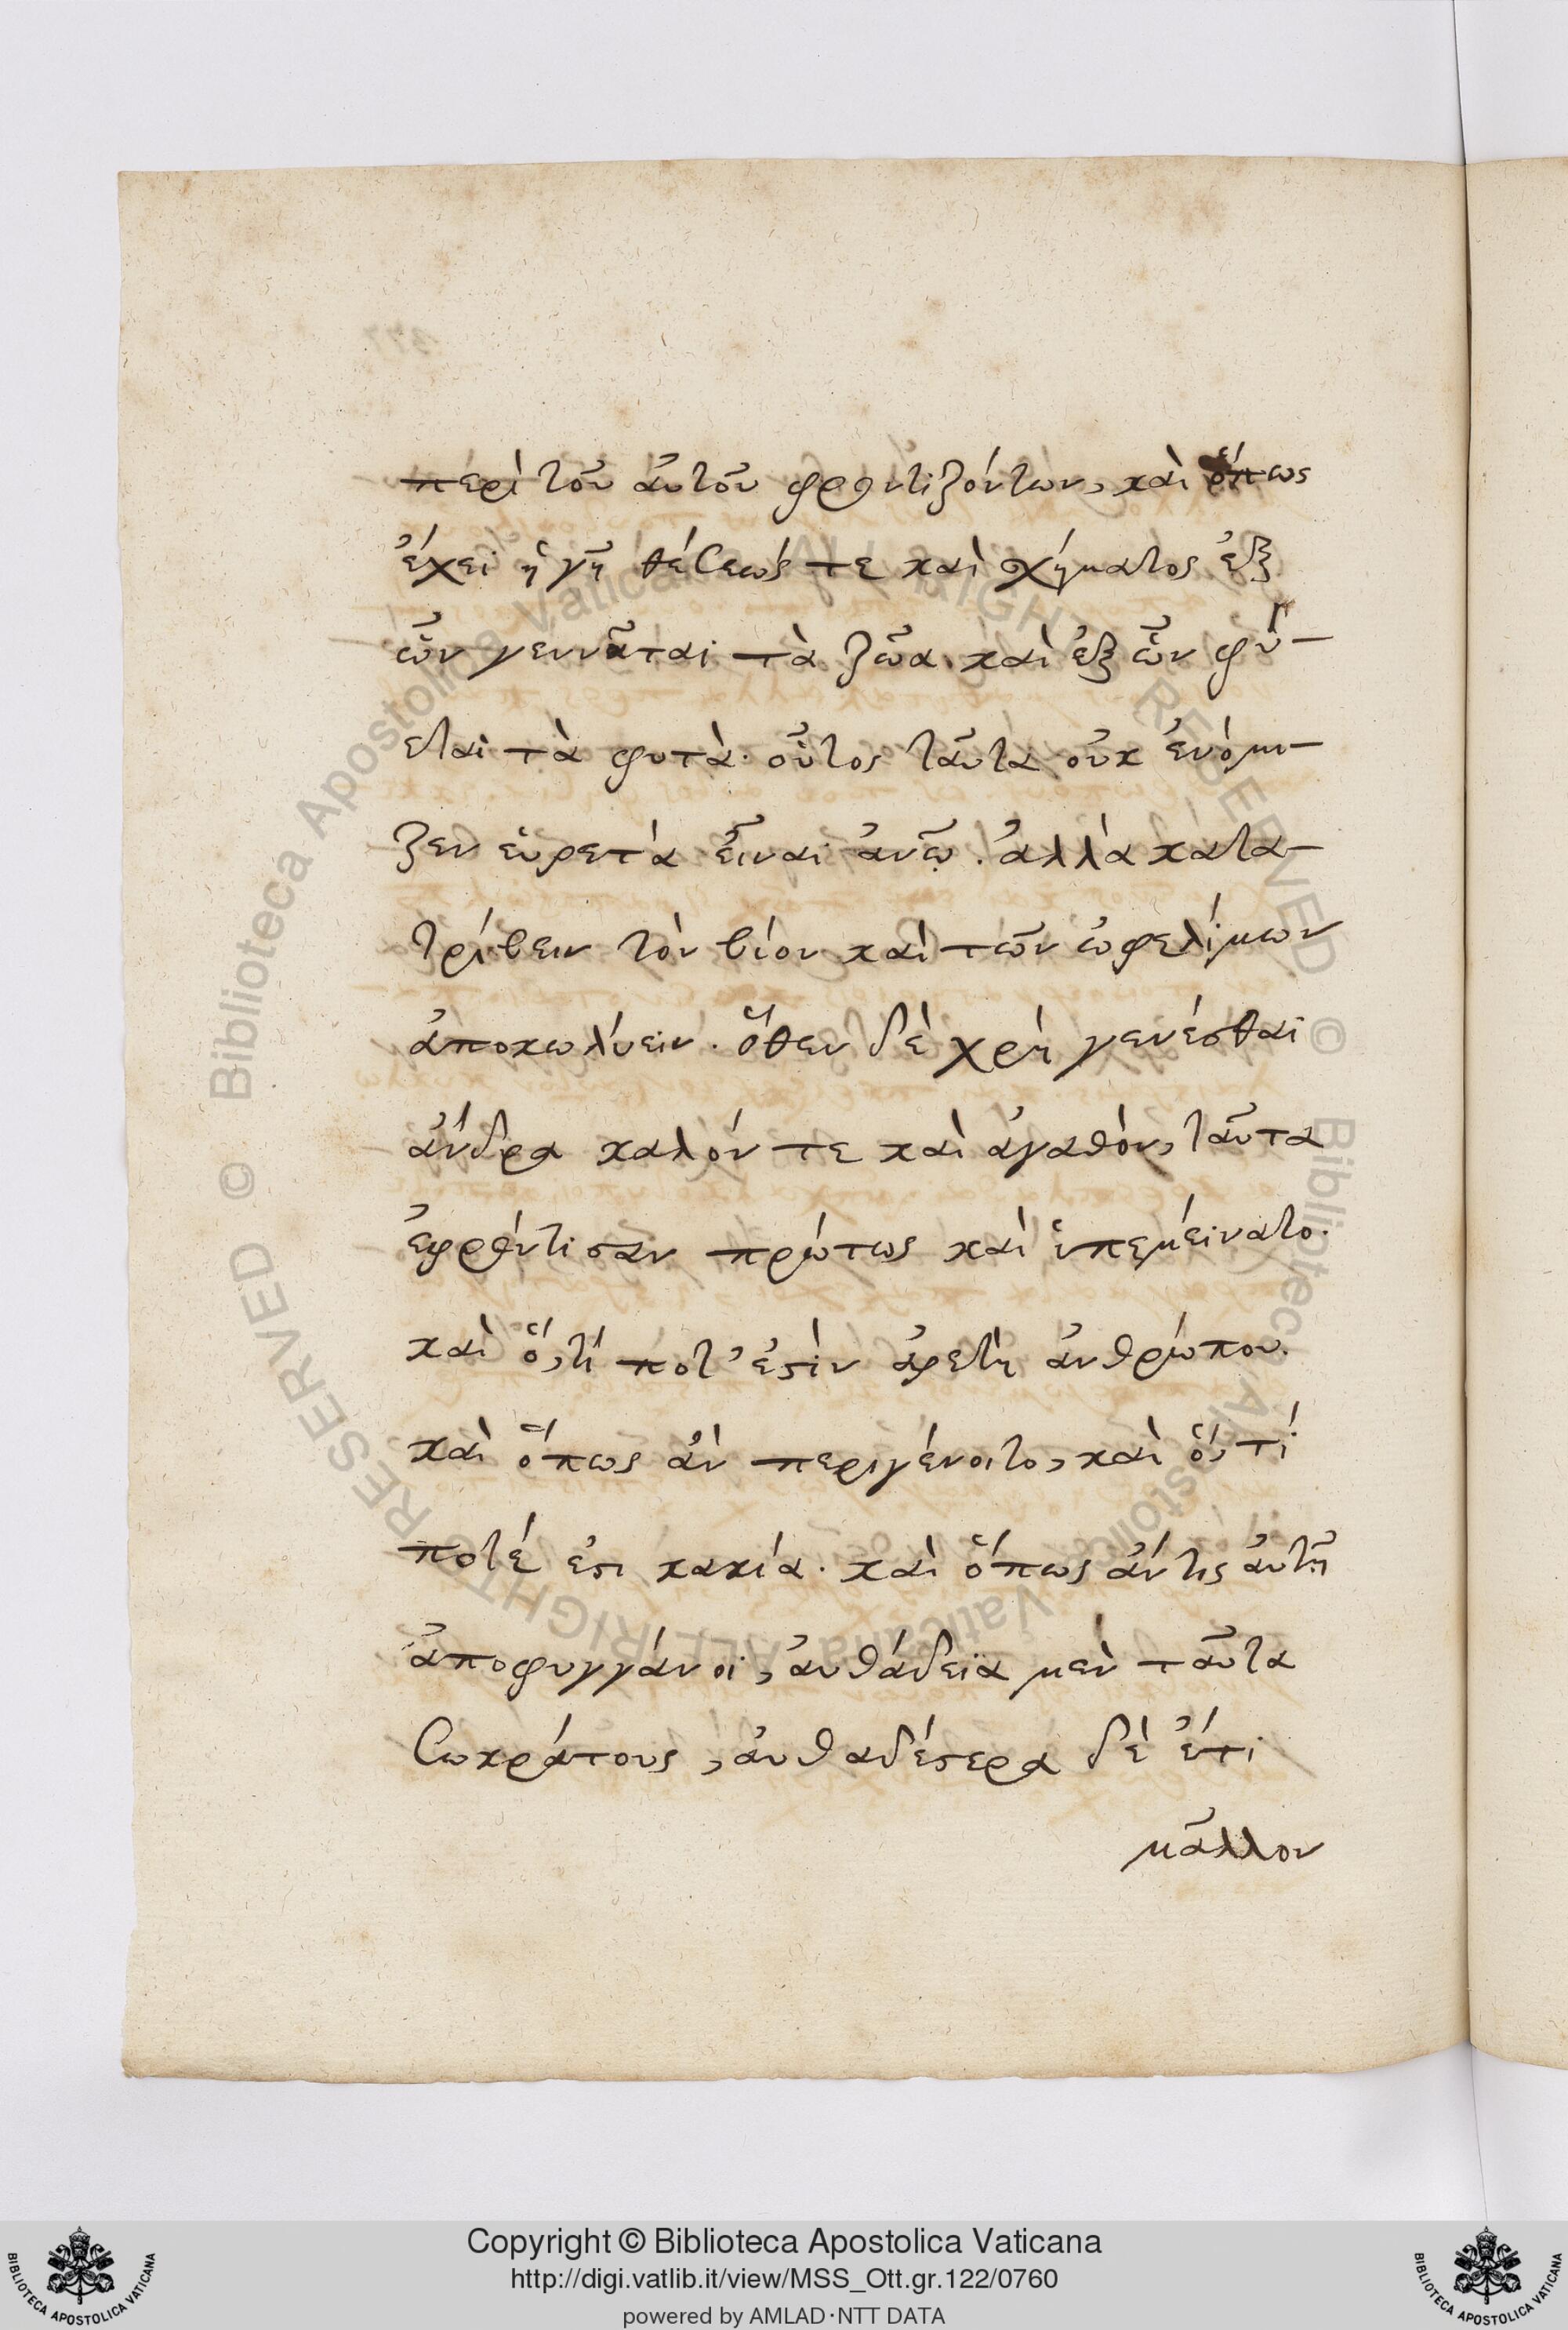 περὶ τοῦ ἀυτοῦ φροντιζόντων, καὶ ὅπως
ἔχει ἡ γῆ θέσεώς τε καὶ σχήματος ἐξ
ὧν γεννᾶται τὰ ζῶα καὶ ἐξ ὧν φύ-
εται τὰ φυτὰ. οὗτος ταῦτα οὐκ ἐνόμι-
ζεν ἑυρετὰ εἶναι ἀνῶ. ἀλλὰ κατα-
τρίβειν τὸν βίον καὶ τῶν ὠφελίμων
ἀποκωλύειν. ὅθεν δὲ χρὴ γενέσθαι
ἄνδρα καλόν τε καὶ ἀγαθὸν, ταῦτα
ἐφρόντισαν πρώτως καὶ ὑπεμείνατο.
καὶ ὅ,τί ποτ’ ἐστὶν ἀρετὴ ἀνθρώπου.
καὶ ὅπως ἂν περιγένοιτο, καὶ ὅ,τί
ποτέ ἐστι κακία. καὶ ὅπως ἄν τις ἀυτῆ
ἀποφυγγάνοι, ἀυθάδεια μὲν ταῦτα
Σωκράτους, ἀυθαδέστερα δὲ ἔτι
μᾶλλον
Copyright © Biblioteca Apostolica Vaticana
http://digi.vatlib.it/view/MSS_Ott.gr.122/0760
powered by AMLAD·NTT DATA